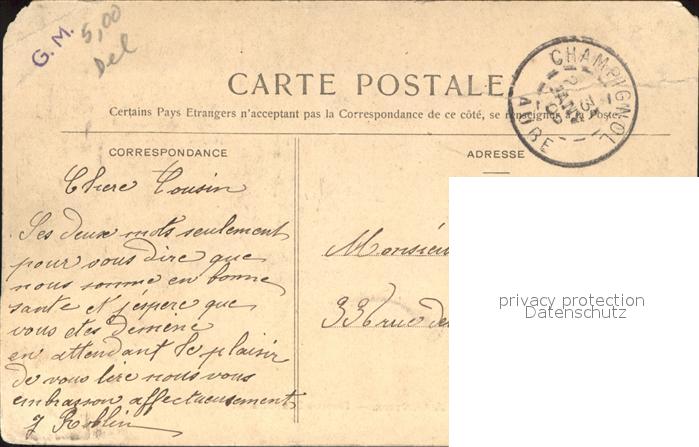 G. M.
5,00
Del
CARTE POSTALE
Certains Pays Etrangers n'acceptent pas la Correspondance de ce côté, se renseigner à la Poste.
CHAMPIGNOL
AUBE
CORRESPONDANCE
Chere Cousin
Ses deux mots seulement
pour vous dire que
nous somme en bonne
sante et j'espere que
vous etes de meme
en attendant le plaisir
de vous lire nous vous
embrasson affectueusement
J Roblin
ADRESSE
Monsieu
33 rue de
privacy protection
Datenschutz